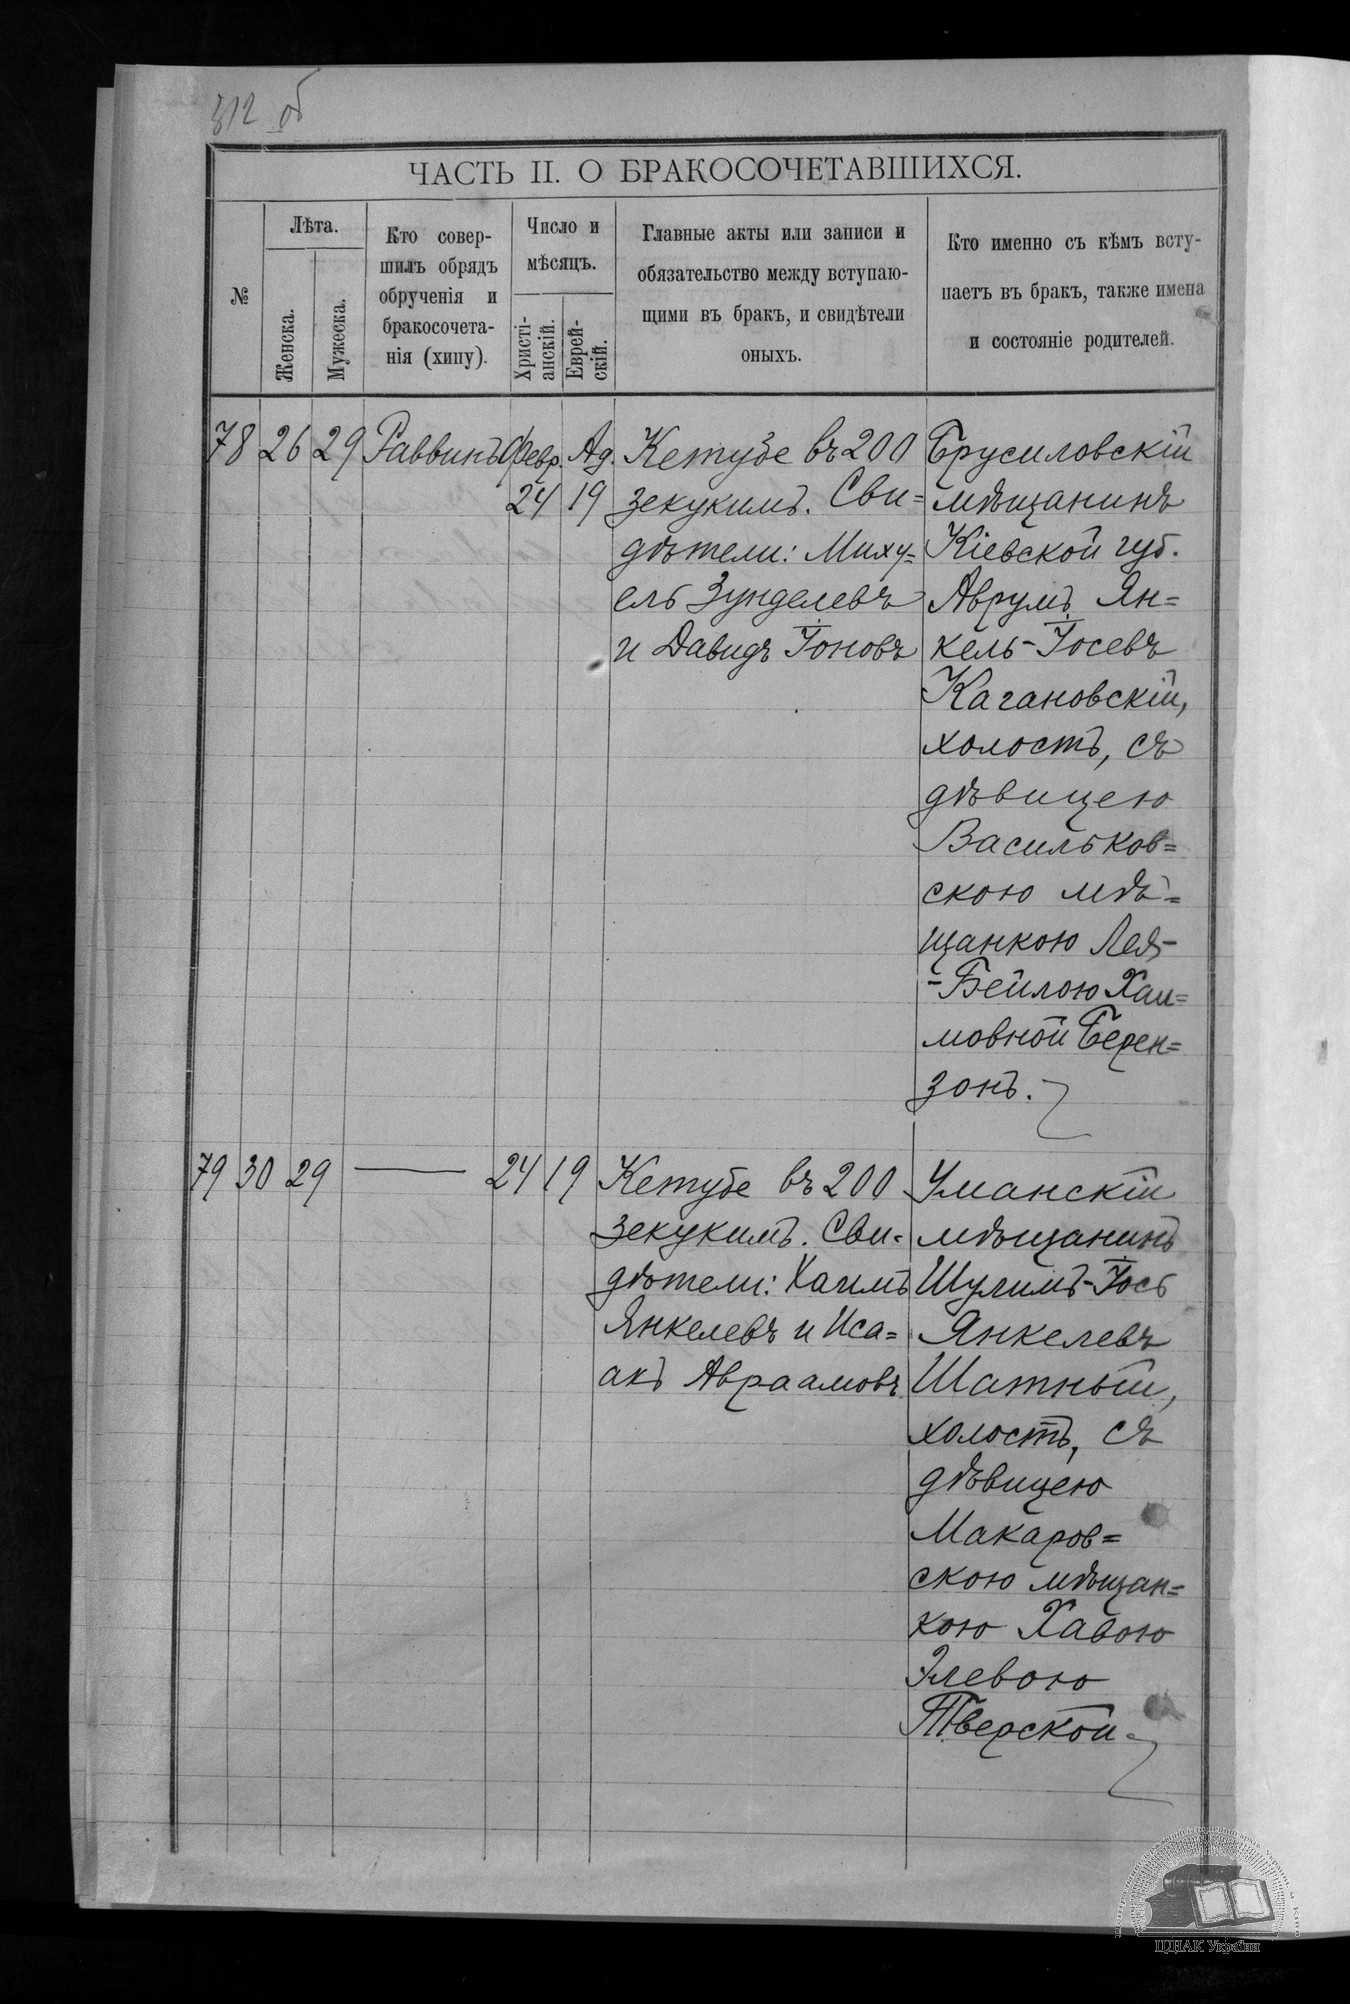 312 об
ЧАСТЬ II. О БРАКОСОЧЕТАВШИХСЯ.
№
Лѣта.
Женска.
Мужеска.
Кто совер-
шилъ обрядъ
обрученія и
бракосочета-
нія (хипу).
Число и
мѣсяцъ.
Христі-
анскій.
Еврей-
скій.
Главные акты или записи и
обязательство между вступаю-
щими въ бракъ, и свидѣтели
оныхъ.
Кто именно съ кѣмъ всту-
паетъ въ бракъ, также имена
и состояніе родителей.
78
26
29
Раввинъ
Февр.
24
Ад.
19
Кетубе въ 200
зекукимъ. Сви=
дѣтели: Миху=
ель Зунделевъ
и Давидъ Іоновъ
Брусиловскій
мѣщанинъ
Кіевской губ.
Аврумъ Ян=
кель-Іосевъ
Кагановскій,
холостъ, съ
дѣвицею
Васильков=
скою мѣ=
щанкою Лея-
-Бейлою Хаи=
мовной Берен=
зонъ.
79
30
29
24
19
Кетубе въ 200
зекукимъ. Сви=
дѣтели: Хаимъ
Янкелевъ и Иса=
акъ Авраамовъ
Уманскій
мѣщанинъ
Шулимъ-Іось
Янкелевъ
Шатный,
холостъ, съ
дѣвицею
Макаров=
скою мѣщан=
кою Хавою
Элевою
Тверской.
ЦДІАК України